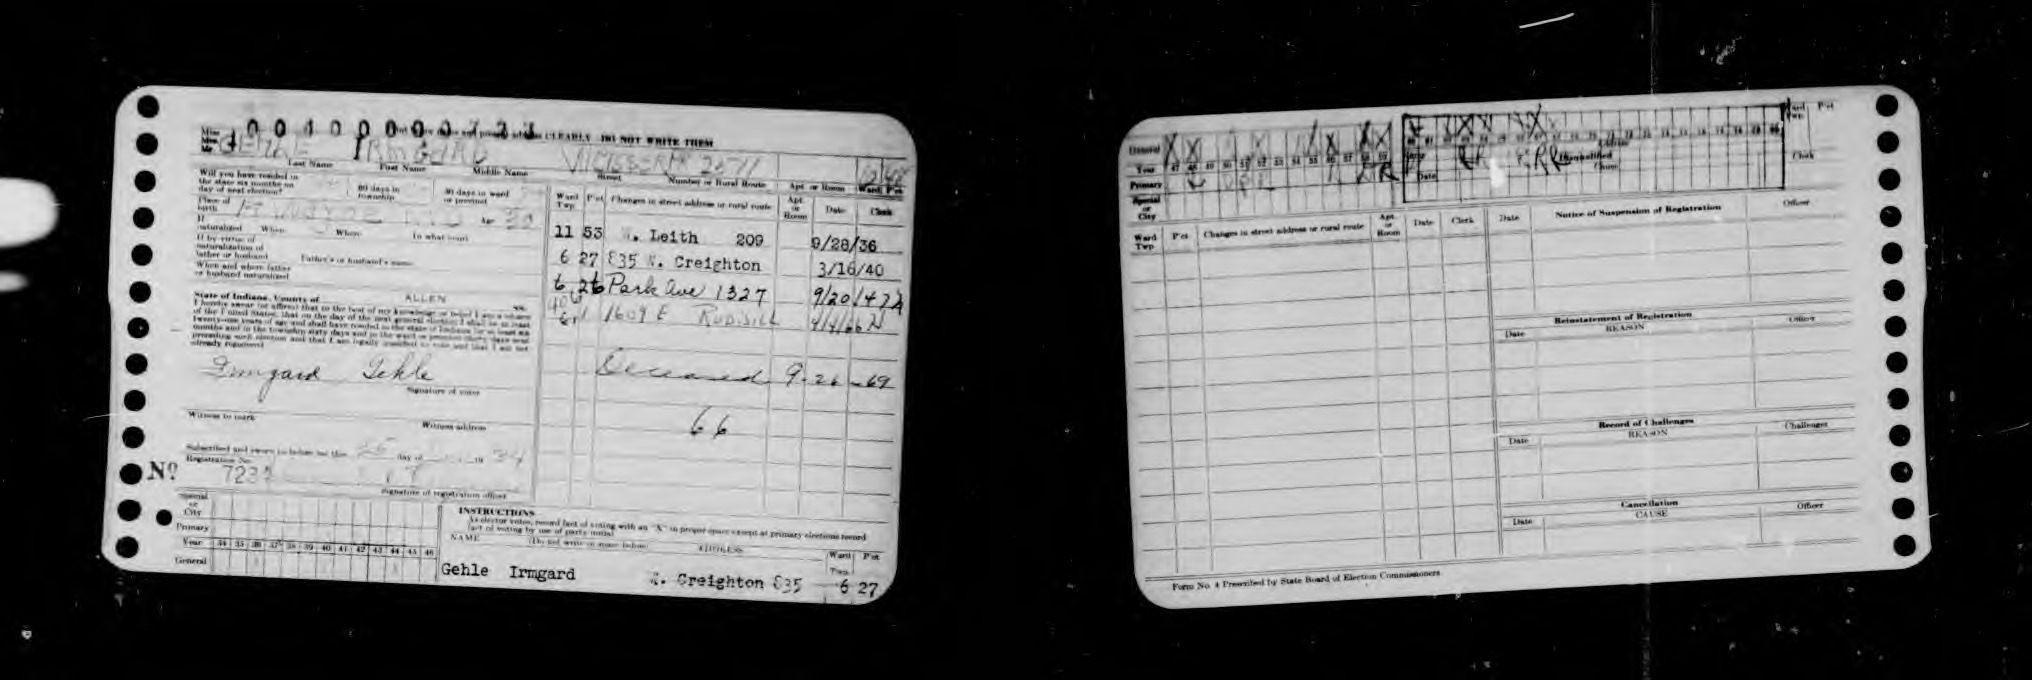 CLEARLY DO NOT WRITE THEM
Miss
Mrs.
Mr. GEHLE IRMGARD 2671
Last Name First Name Middle Name Street Number or Rural Route Apt. or Room Ward Pct
Will you have resided in
the state six months on
day of next election? 60 days in
township 30 days in ward
or precinct
Place of
birth Age
If
naturalized When Where In what court
If by virtue of
naturalization of
father or husband Father's or husband's name
When and where father
or husband naturalized
State of Indiana, County of ALLEN SS.
I hereby swear (or affirm) that to the best of my knowledge or belief I am a citizen
of the United States, that on the day of the next general election I shall be at least
twenty-one years of age and shall have resided in the state of Indiana for at least six
months and in the township sixty days and in the ward or precinct thirty days next
preceding such election and that I am legally qualified to vote and that I am not
already registered
Irmgard Gehle
Signature of voter
Witness to mark Witness address
Subscribed and sworn to before me this 25 day of 19 34
Registration No.
No 7232
Signature of registration officer
Ward
Twp. P'ct Changes in street address or rural route Apt.
or
Room Date Clerk
11 53 W. Leith 209 9/28/36
6 27 835 W. Creighton 3/16/40
6 26 Park Ave 1327 9/20/47
1609 E RUDISILL 4/4/66
Deceased 9-26-69
66
Special
or
City
Primary
Year 34 35 36 37 38 39 40 41 42 43 44 45 46
General
INSTRUCTIONS
As elector votes, record fact of voting with an "X" in proper space except at primary elections record
fact of voting by use of party initial
NAME (Do not write in space below) ADDRESS Ward
Twp. P'ct
Gehle Irmgard W. Creighton 835 6 27
General
Year 47 48 49 50 51 52 53 54 55 56 57 58 59
Primary
Special
or
City
Date
Disqualified
Ward
Twp P'ct
Clerk
Ward
Twp P'ct Changes in street address or rural route Apt.
or
Room Date Clerk
Date Notice of Suspension of Registration Officer
Reinstatement of Registration
Date REASON Officer
Record of Challenges
Date REASON Challenger
Cancellation
Date CAUSE Officer
Form No. 4 Prescribed by State Board of Election Commissioners